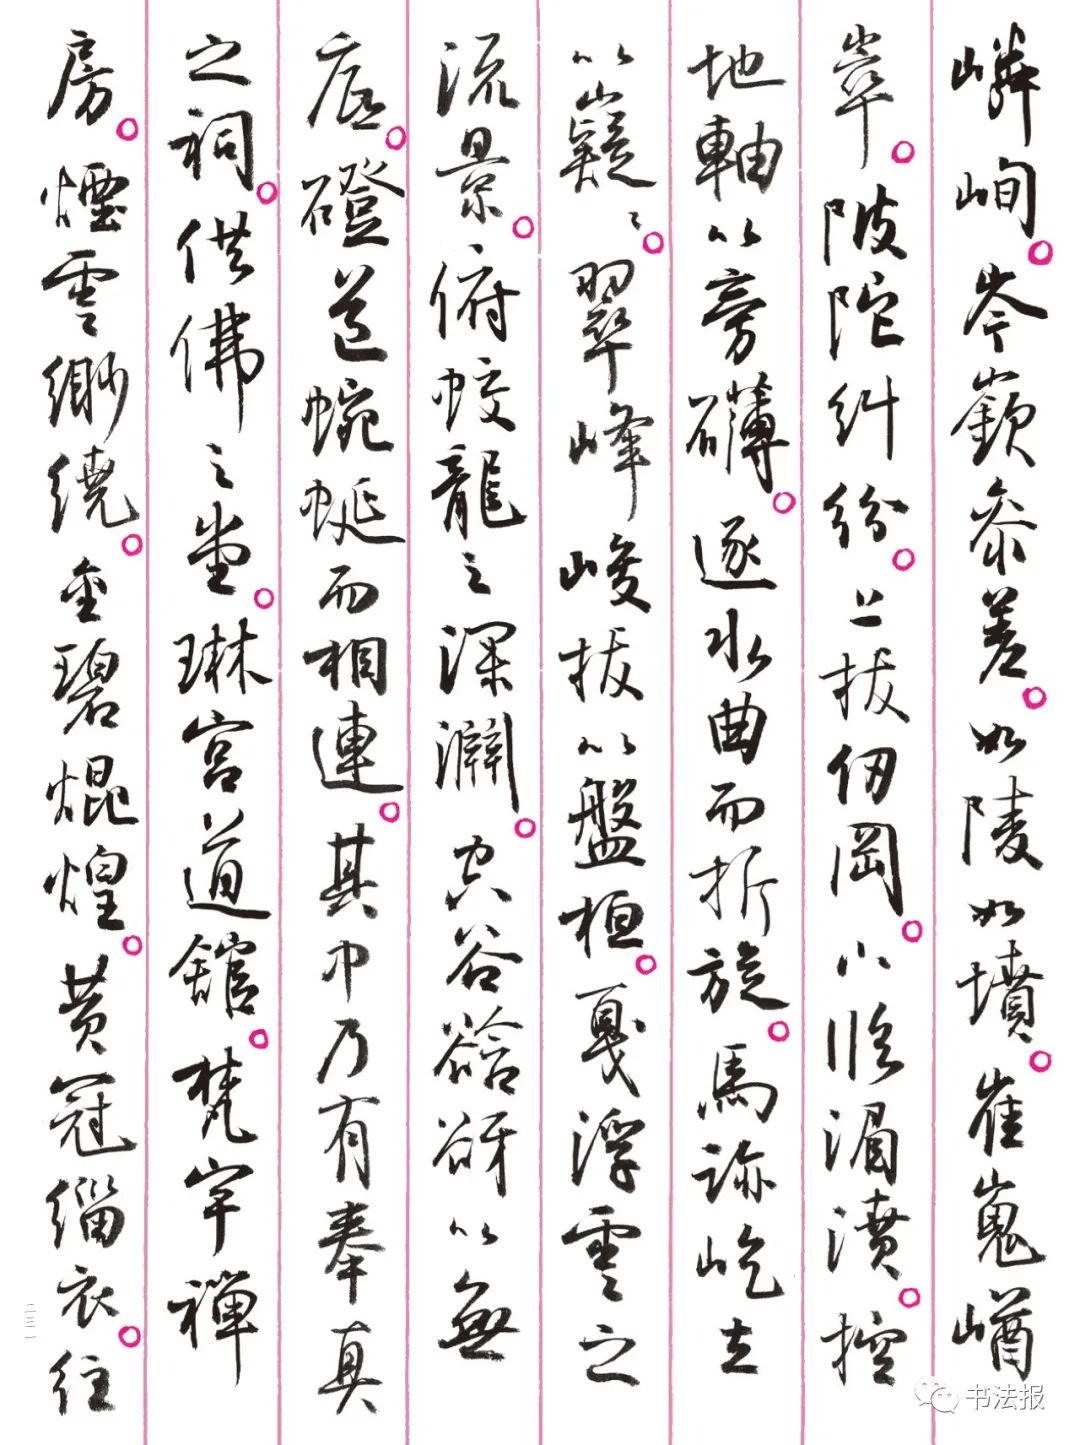 嶙峋。岑嶔參差。如陵如墳。崔嵬崷
崒。陂陀糾紛。上拔仞岡。下臨湄濆。控
地軸以旁礴。逐水曲而折旋。馬跡屹立
以嶷嶷。翠峰峻拔以盤桓。戛浮雲之
流景。俯蛟龍之深淵。空谷谽谺以無
底。磴道蜿蜒而相連。其中乃有奉真
之祠。供佛之堂。琳宮道館。梵宇禪
房。煙雲緲繞。金碧焜煌。黃冠緇衣。往
二三一
书法报